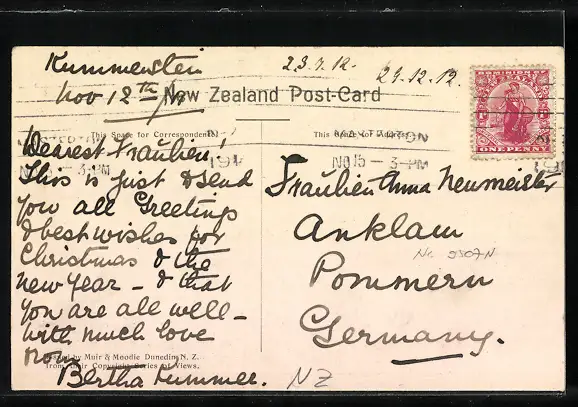 Kummerstein
Nov 12th/11
23.7.12.
29.12.12
New Zealand Post-Card
ONE PENNY
This Space for Correspondence
This Space for Address
NO 15 - 3-PM
191
Dearest Fraülien!
This is just to send
you all Greetings
& best wishes for
Christmas & the
new year - & that
you are all well -
with much love
from
Bertha Kummer.
by Muir & Moodie Dunedin, N. Z.
from their Copyright Series of Views.
Fraülien Anna Neumeister
Anklam
Pommern
Germany.
NZ